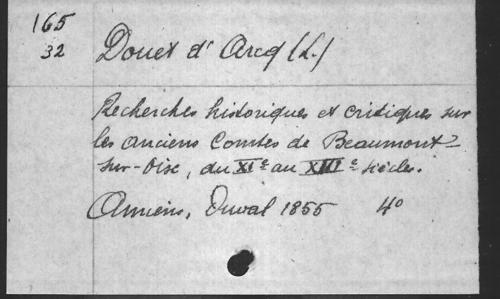 165
32
Douet d' Arcq (L.)
Recherches historiques et critiques sur
les anciens Comtes de Beaumont-
sur-Oise, du XIe au XIIIe siècles.
Amiens, Duval 1855 4o